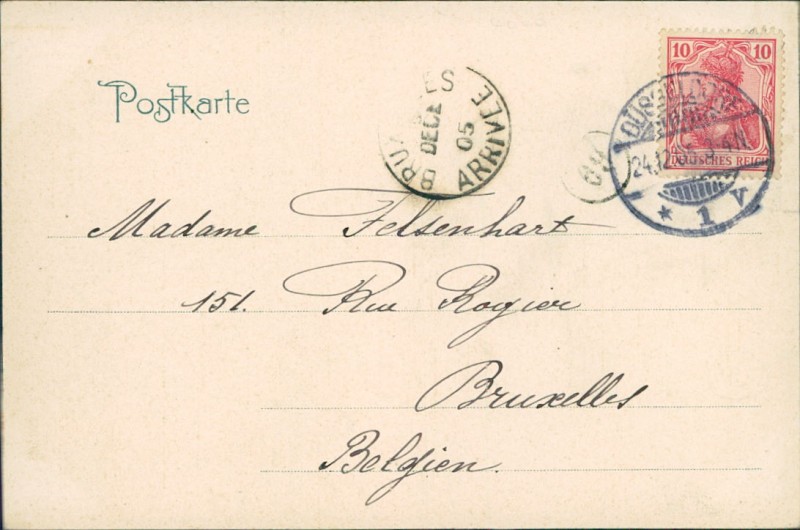 Postkarte
DEC
05
ARRIVÉE
10 10
DEUTSCHES REICH
24.12.05
* 1 V
Madame Felsenhart
151. Rue Rogier
Bruxelles
Belgien.